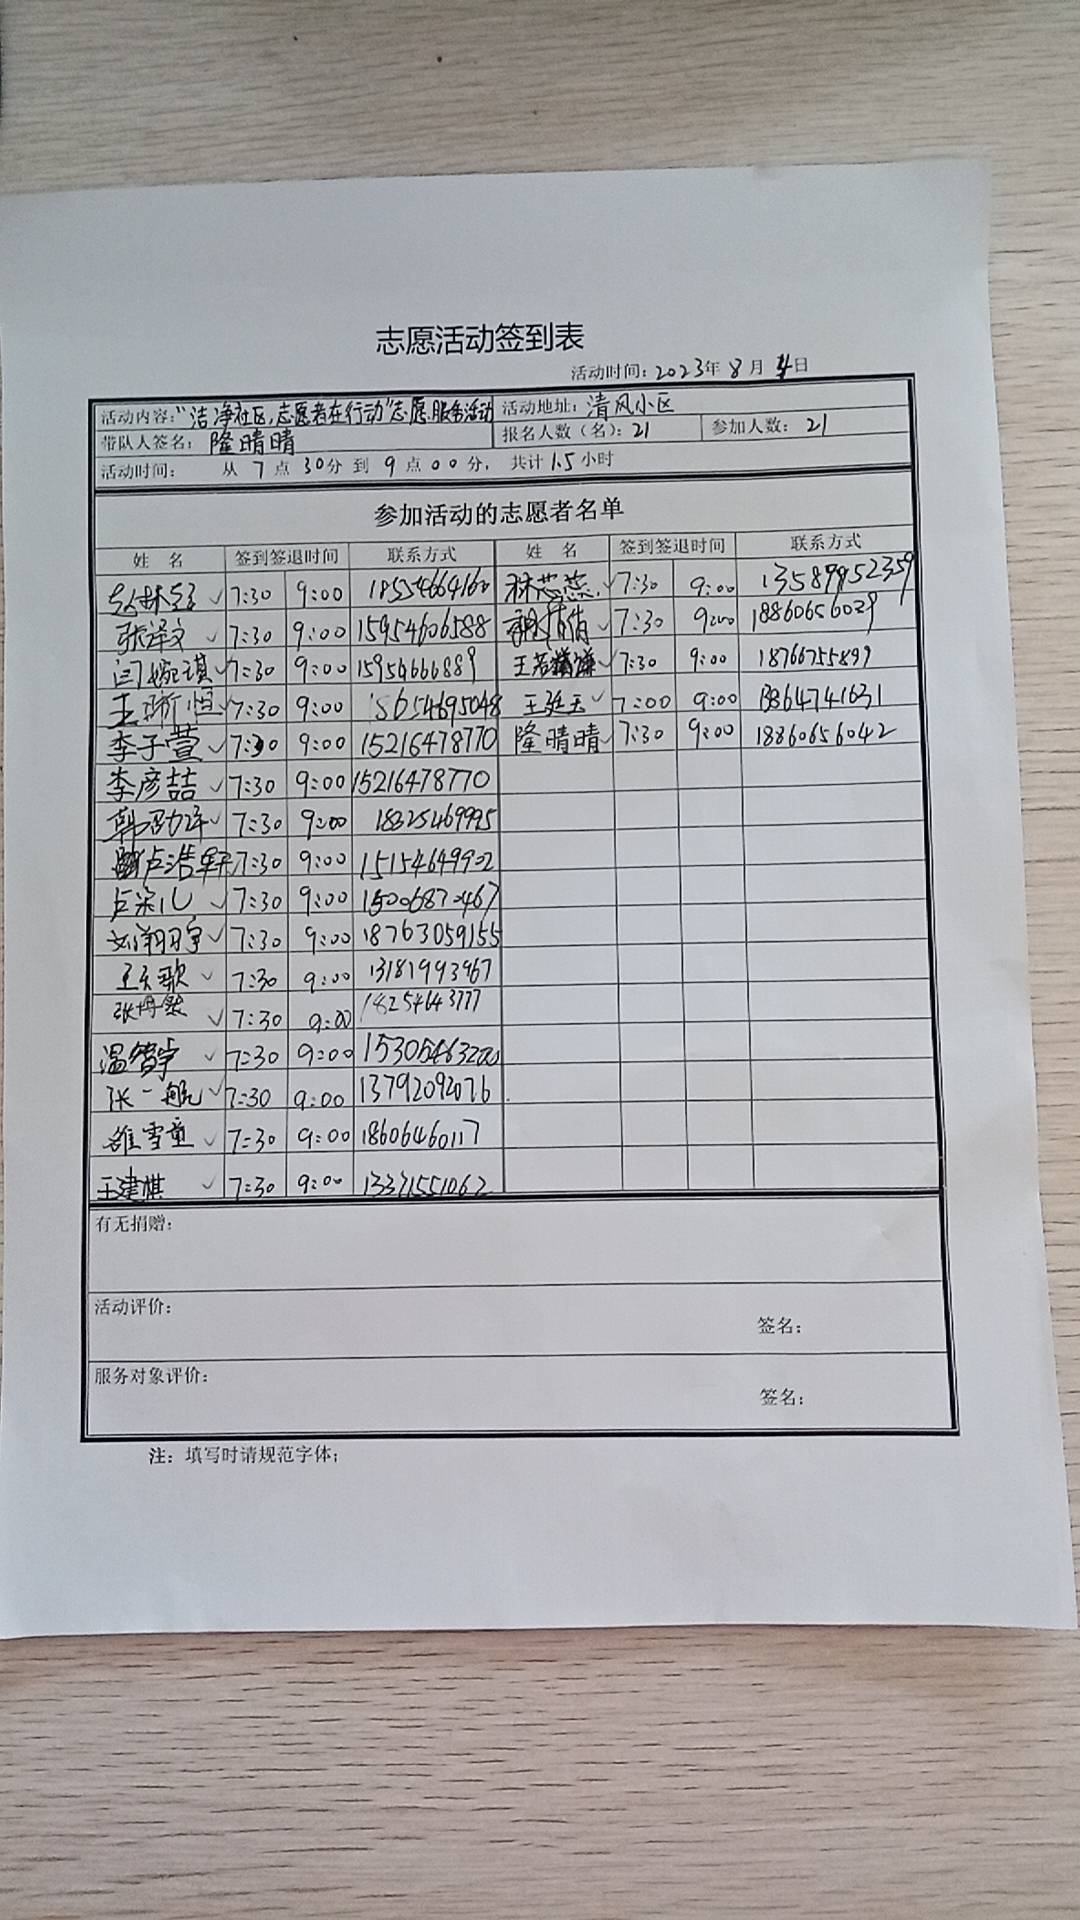 志愿活动签到表
活动时间：2023年 8 月 4日
活动内容："洁净社区,志愿者在行动"志愿服务活动 活动地址：清风小区
带队人签名：隆晴晴 报名人数（名）：21 参加人数：21
活动时间： 从 7 点 30分 到 9 点 00 分， 共计 1.5 小时
参加活动的志愿者名单
姓 名 签到签退时间 联系方式 姓 名 签到签退时间 联系方式
✓ 7:30 9:00 18554664160 林芯蕊 ✓ 7:30 9:00 13589952359
张译文 ✓ 7:30 9:00 15954606588 ✓ 7:30 9:00 18860656029
闫婉琪 ✓ 7:30 9:00 15954666889 王若 谦 ✓ 7:30 9:00 18766755899
王 恒 ✓ 7:30 9:00 15654695048 王廷玉 ✓ 7:00 9:00 13864741631
李子萱 ✓ 7:30 9:00 15216478770 隆晴晴 ✓ 7:30 9:00 18860656042
李彦喆 ✓ 7:30 9:00 15216478770
韩 ✓ 7:30 9:00 18325469995
卢浩轩 7:30 9:00 15154649902
卢 儿 ✓ 7:30 9:00 15006870467
刘翔宇 ✓ 7:30 9:00 18763059155
王天歌 ✓ 7:30 9:00 13181993967
张博 ✓ 7:30 9:00 18254643777
温 宇 ✓ 7:30 9:00
张一航 ✓ 7:30 9:00 13792092076
雒雪童 ✓ 7:30 9:00 18606460117
王建棋 ✓ 7:30 9:00 13371551062
有无捐赠：
活动评价：
签名：
服务对象评价：
签名：
注：填写时请规范字体；